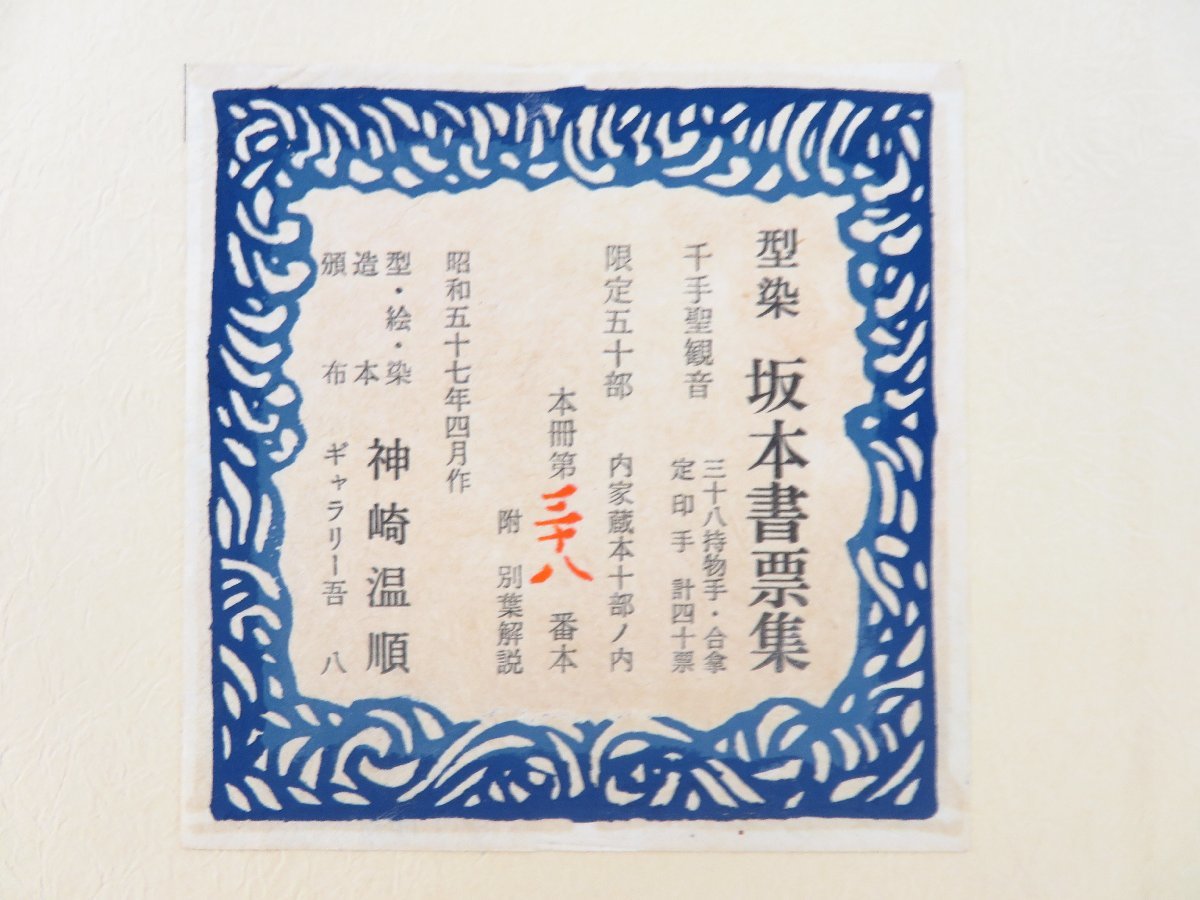 型染 坂本書票集
千手聖観音
三十八持物手・合拿
定印手 計四十票
限定五十部 内家蔵本十部ノ内
本冊第三十八番本
附 別葉解説
昭和五十七年四月作
型・絵・染 神崎温順
造本
頒布 ギャラリー吾八